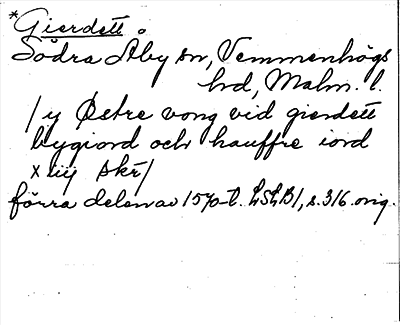 *Gierdett.
Södra Åby sn, Vemmenhögs
hd, Malm. l.
/y Østre vong vid gierdett
bygiord och hauffre iord
x iiij skr/
förra delen av 1570-t. LSLB1, s. 316. orig.